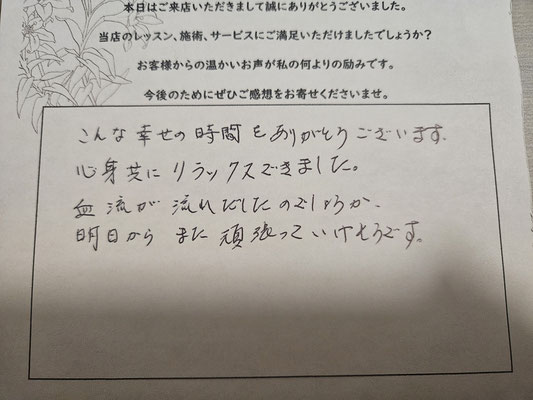 本日はご来店いただきまして誠にありがとうございました。
当店のレッスン、施術、サービスにご満足いただけましたでしょうか?
お客様からの温かいお声が私の何よりの励みです。
今後のためにぜひご感想をお寄せくださいませ。
こんな幸せの時間をありがとうございます.
心身共にリラックスできました。
血流が流れだしたのでしょうか.
明日からまた頑張っていけそうです。